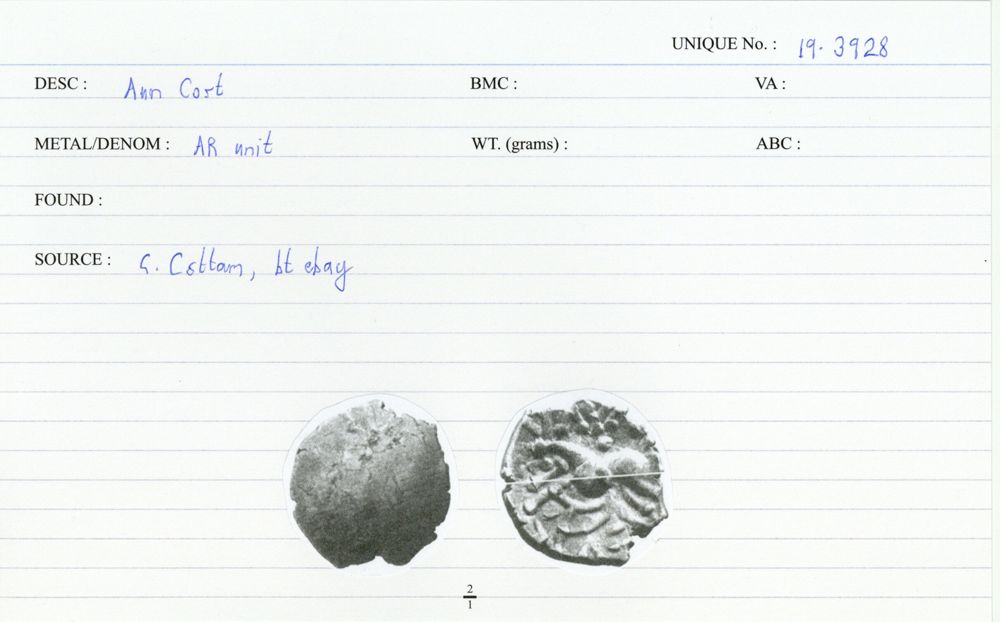 UNIQUE No. : 19.3928
DESC : Ann Cort BMC : VA :
METAL/DENOM : AR unit WT. (grams) : ABC :
FOUND :
SOURCE : G. Cottam, bt ebay
2
1